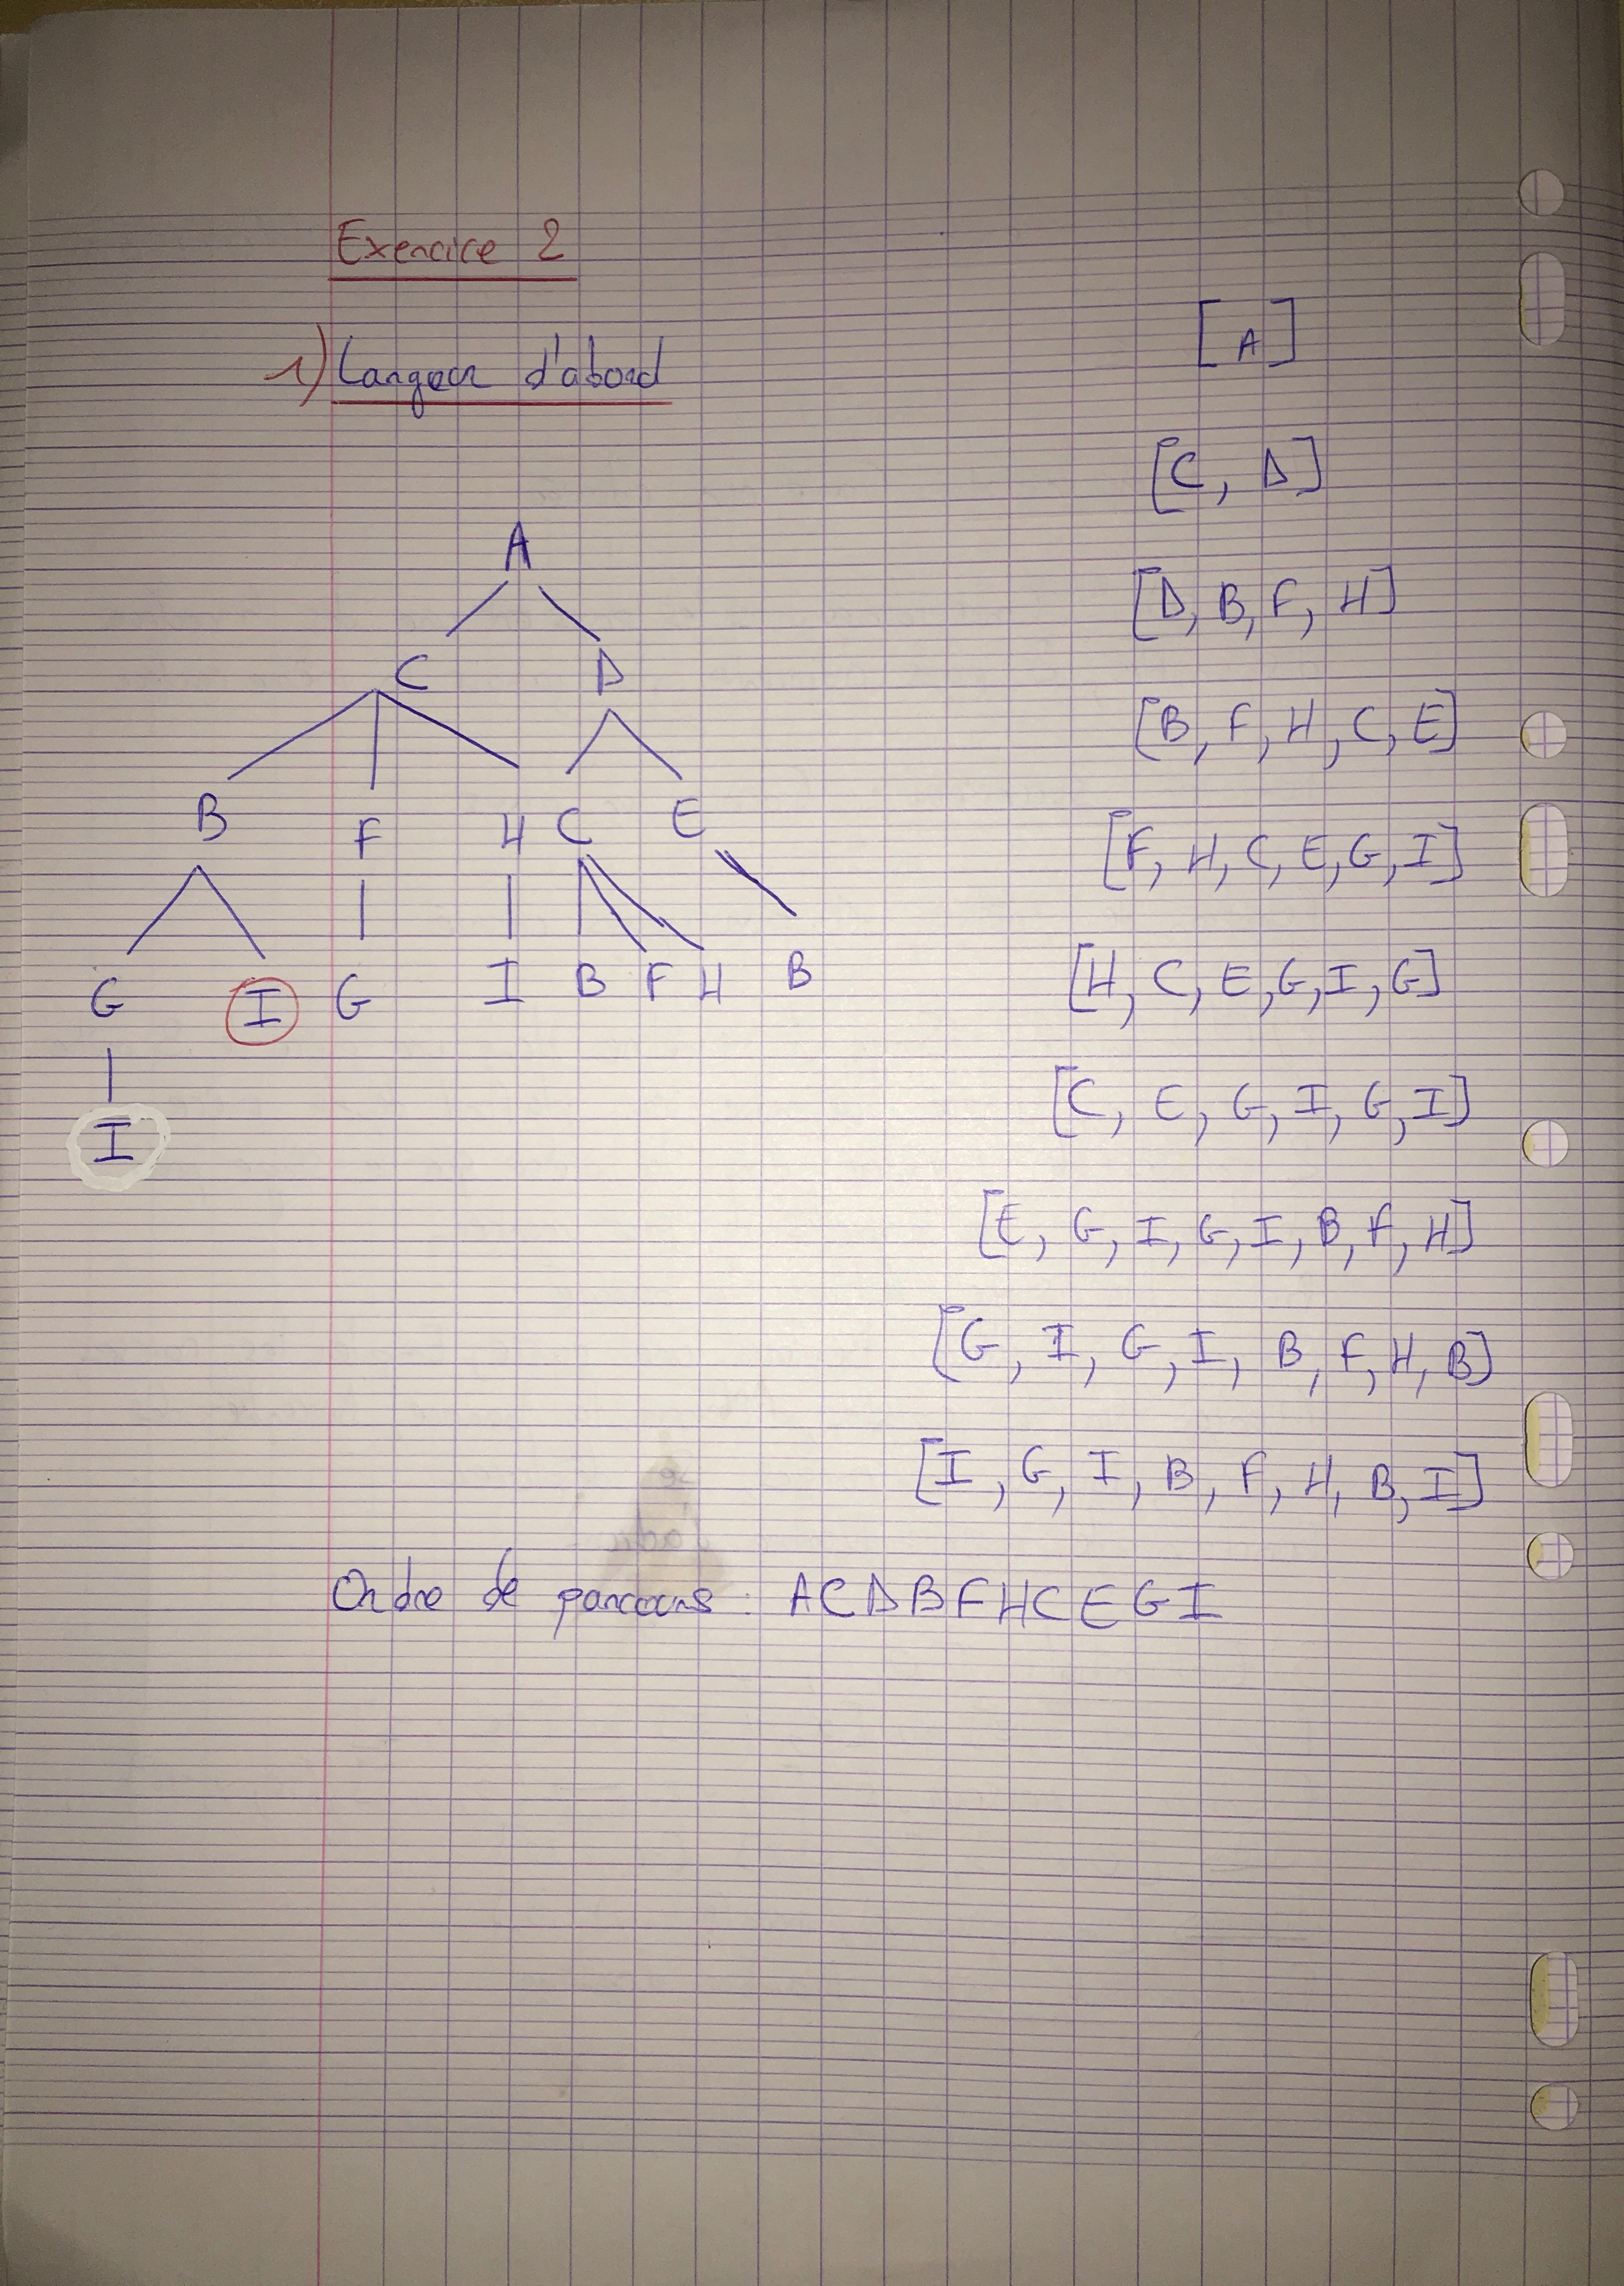 Exercice 2
1) Largeur d'abord
A
C D
B F H C E
G I G I B F H B
I
[A]
[C, D]
[D, B, F, H]
[B, F, H, C, E]
[F, H, C, E, G, I]
[H, C, E, G, I, G]
[C, E, G, I, G, I]
[E, G, I, G, I, B, F, H]
[G, I, G, I, B, F, H, B]
[I, G, I, B, F, H, B, I]
Ordre de parcours : A C D B F H C E G I